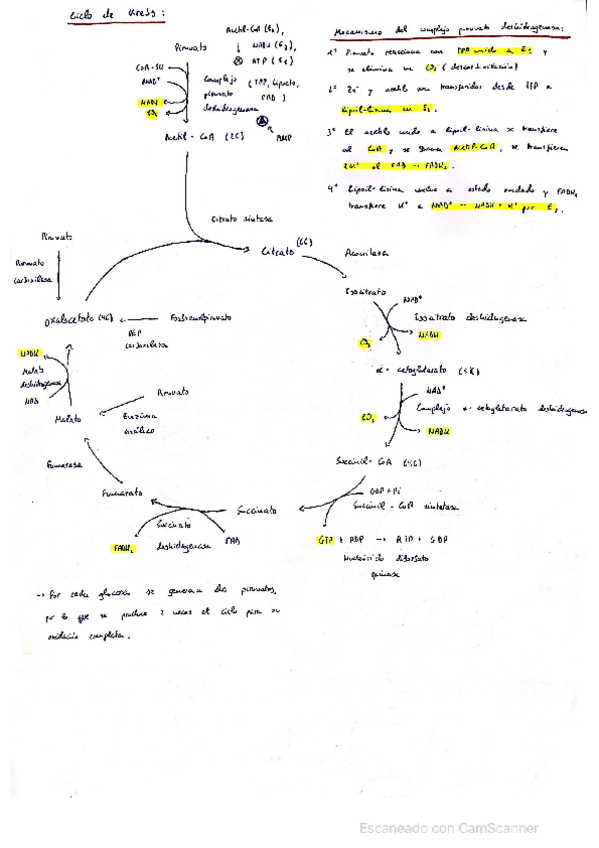 Ciclo de Krebs:
Acetil-CoA (E2),
Piruvato
NADH (E3),
ATP (E1)
CoA-SH
NAD+
NADH
CO2
Complejo (TPP, lipoato,
piruvato FAD)
deshidrogenasa
AMP
Acetil-CoA (2C)
Mecanismo del complejo piruvato deshidrogenasa:
1º Piruvato reacciona con TPP unido a E1 y
se elimina un CO2 (descarboxilación)
2º 2e- y acetilo son transferidos desde TPP a
lipoil-lisina en E2.
3º El acetilo unido a lipoil-lisina se transfiere
al CoA y se genera Acetil-CoA, se transfieren
2H+ al FAD → FADH2.
4º Lipoil-lisina vuelve a estado oxidado y FADH2
transfiere H+ a NAD+ → NADH + H+ por E3.
Citrato sintasa
Citrato (6C)
Aconitasa
Isocitrato
NAD+
Isocitrato deshidrogenasa
NADH
CO2
α-cetoglutarato (5C)
NAD+
Complejo α-cetoglutarato deshidrogenasa
CO2
NADH
Succinil-CoA (4C)
GDP+Pi
Succinil-CoA sintetasa
GTP + ADP → ATP + GDP
Nucleósido difosfato
quinasa
Succinato
FAD
Succinato
deshidrogenasa
FADH2
Fumarato
Fumarasa
Malato
Piruvato
Enzima
málico
NADH
Malato
deshidrogenasa
NAD
Oxalacetato (4C)
Fosfoenolpiruvato
PEP
carboxilasa
Piruvato
Piruvato
carboxilasa
→ Por cada glucosa se generan dos piruvatos,
por lo que se produce 2 veces el ciclo para su
oxidación completa.
Escaneado con CamScanner